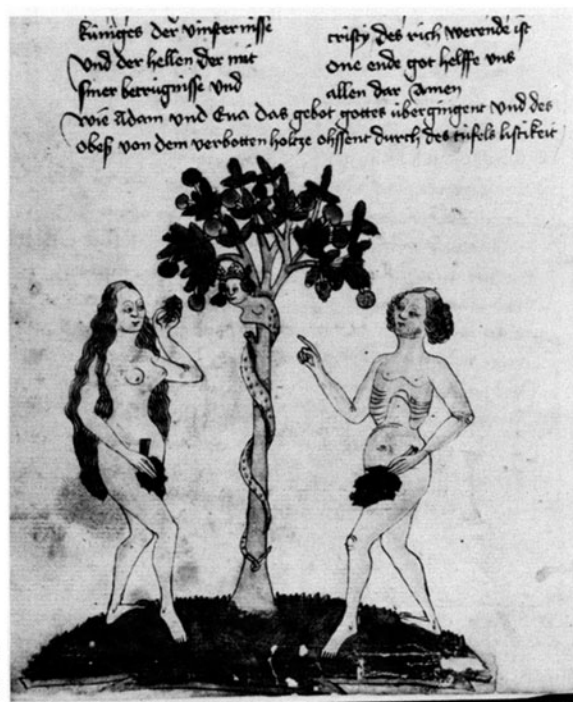 küniges der vinsternisse
und der hellen der mit
siner betrugnisse und
cristy des rich werende ist
one ende got helffe uns
allen dar Amen
wie Adam und Eva das gebot gottes übergingent und des
obeß von dem verbotten holtze ossent durch des tüfels listikeit